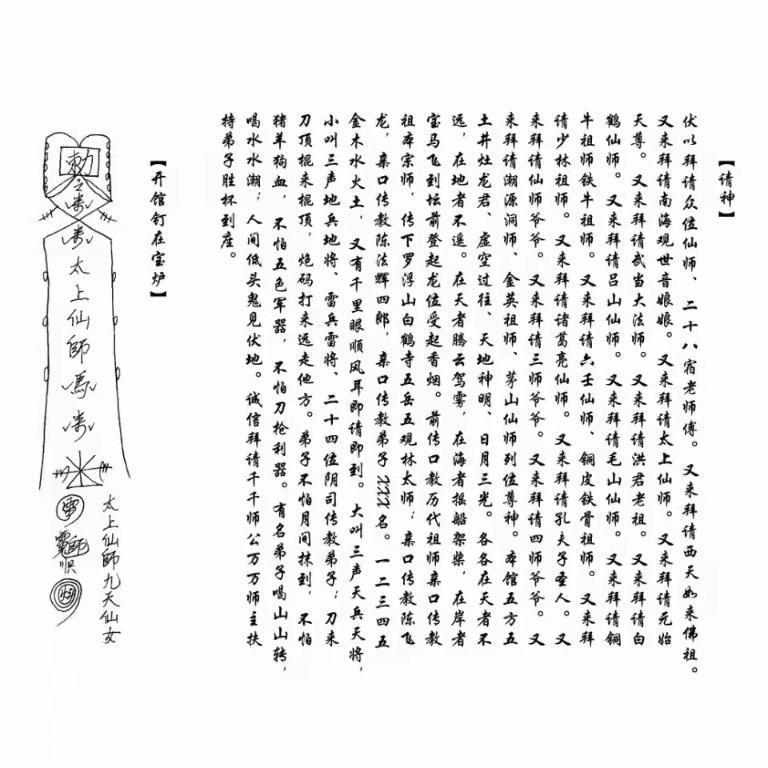 【请神】
伏以拜请众位仙师、二十八宿老师傅。又来拜请西天如来佛祖。
又来拜请南海观世音娘娘。又来拜请太上仙师。又来拜请元始
天尊。又来拜请武当大法师。又来拜请洪君老祖。又来拜请白
鹤仙师。又来拜请吕山仙师。又来拜请毛山仙师。又来拜请铜
牛祖师铁牛祖师。又来拜请六壬仙师、铜皮铁骨祖师。又来拜
请少林祖师。又来拜请诸葛亮仙师。又来拜请孔夫子圣人。又
来拜请仙师爷爷。又来拜请三师爷爷。又来拜请四师爷爷。又
来拜请潮源洞师、金英祖师、茅山仙师到位尊神。本馆五方五
土井灶龙君、虚空过往、天地神明、日月三光。各各在天者不
远，在地者不遥。在天者腾云驾雾，在海者摇船架桨，在岸者
宝马飞到坛前登起龙位受起香烟。前传口教历代祖师亲口传教
祖本宗师，传下罗浮山白鹤寺五岳五观林太师；亲口传教陈飞
龙，亲口传教陈法辉四郎，亲口传教弟子XXX名。一二三四五
金木水火土，又有千里眼顺风耳即请即到。大叫三声天兵天将，
小叫三声地兵地将、雷兵雷将、二十四位阴司传教弟子；刀来
刀顶棍来棍顶，炮码打来远走他方。弟子不怕月间抹到，不怕
猪羊狗血，不怕五色军器，不怕刀枪利器。有名弟子喝山山转，
喝水水潮；人间低头鬼见伏地。诚信拜请千千师公万万师主扶
持弟子胜杯到座。
【开馆钉在宝炉】
太上仙師九天仙女
勅
太上仙師